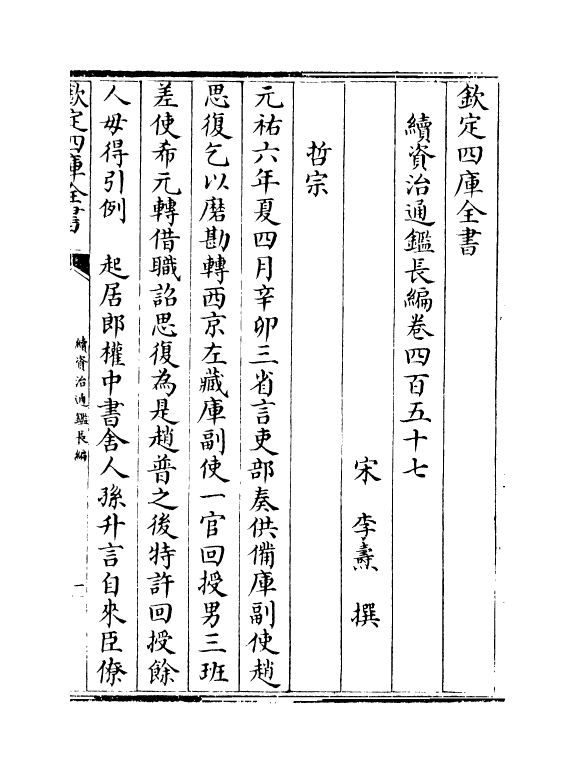 欽定四庫全書
續資治通鑑長編卷四百五十七
宋 李燾 撰
哲宗
元祐六年夏四月辛卯三省言吏部奏供備庫副使趙
思復乞以磨勘轉西京左藏庫副使一官回授男三班
差使希元轉借職詔思復為是趙普之後特許回授餘
人毋得引例 起居郎權中書舍人孫升言自來臣僚
欽定四庫全書
續資治通鑑長編
一